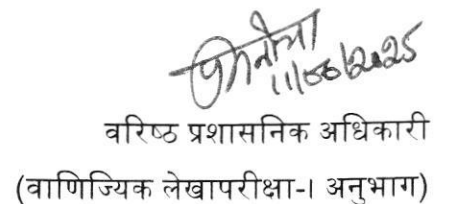 11/06/2025
वरिष्ठ प्रशासनिक अधिकारी
(वाणिज्यिक लेखापरीक्षा-I अनुभाग)